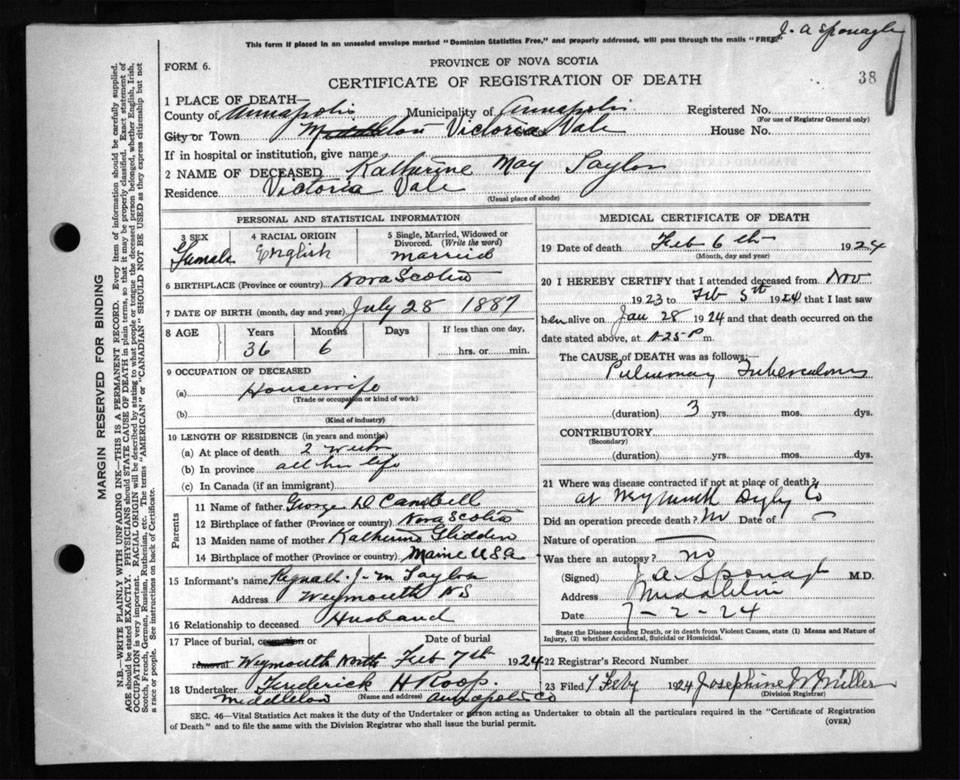 J. A Sponagle
This form if placed in an unsealed envelope marked "Dominion Statistics Free," and properly addressed, will pass through the mails "FREE."
FORM 6.
PROVINCE OF NOVA SCOTIA
CERTIFICATE OF REGISTRATION OF DEATH
38
1 PLACE OF DEATH
County of Annapolis Municipality of Annapolis Registered No.
(For use of Registrar General only)
City or Town Middleton Victoria Vale House No.
If in hospital or institution, give name
2 NAME OF DECEASED Katherine May Taylor
Residence Victoria Vale
(Usual place of abode)
PERSONAL AND STATISTICAL INFORMATION
3 SEX Female
4 RACIAL ORIGIN English
5 Single, Married, Widowed or Divorced. (Write the word) married
6 BIRTHPLACE (Province or country) Nova Scotia
7 DATE OF BIRTH (month, day and year) July 28 1887
8 AGE Years Months Days If less than one day,
36 6 hrs. or min.
9 OCCUPATION OF DECEASED
(a) Housewife
(Trade or occupation or kind of work)
(b)
(Kind of industry)
10 LENGTH OF RESIDENCE (in years and months)
(a) At place of death 2 weeks
(b) In province all her life
(c) In Canada (if an immigrant)
Parents
11 Name of father George D Campbell
12 Birthplace of father (Province or country) Nova Scotia
13 Maiden name of mother Katherine Glidden
14 Birthplace of mother (Province or country) Maine USA
15 Informant's name J. M Taylor
Address Weymouth NS
16 Relationship to deceased Husband
17 Place of burial, cremation or removal Weymouth North
Date of burial Feb 7th 1924
18 Undertaker Frederick H Roop
Middleton (Name and address) Annapolis Co
MEDICAL CERTIFICATE OF DEATH
19 Date of death Feb 6th 1924
(Month, day and year)
20 I HEREBY CERTIFY that I attended deceased from Nov
1923 to Feb 5th 1924 that I last saw
her alive on Jan 28 1924 and that death occurred on
date stated above, at m.
The CAUSE OF DEATH was as follows:
Pulmonary Tuberculosis
(duration) 3 yrs. mos. dys.
CONTRIBUTORY
(Secondary)
(duration) yrs. mos. dys.
21 Where was disease contracted if not at place of death?
at Weymouth Digby Co
Did an operation precede death? No Date of
Nature of operation
Was there an autopsy? no
(Signed) J. A. Sponagle M.D.
Address Middleton
Date 7-2-24
State the Disease causing Death, or in death from Violent Causes, state (1) Means and Nature of
Injury, (2) whether Accidental, Suicidal or Homicidal.
22 Registrar's Record Number
23 Filed 7 Feby 1924 Josephine W Miller
(Division Registrar)
SEC. 46—Vital Statistics Act makes it the duty of the Undertaker or person acting as Undertaker to obtain all the particulars required in the "Certificate of Registration
of Death" and to file the same with the Division Registrar who shall issue the burial permit.
(OVER)
MARGIN RESERVED FOR BINDING
N.B.—WRITE PLAINLY WITH UNFADING INK—THIS IS A PERMANENT RECORD. Every item of information should be carefully supplied.
AGE should be stated EXACTLY. PHYSICIANS should STATE CAUSE OF DEATH in plain terms, so that it may be properly classified. Exact statement of
OCCUPATION is very important. RACIAL ORIGIN will be described by stating to what people or tongue the deceased person belonged, whether English, Irish,
Scotch, French, German, Russian, Ruthenian, etc. The terms "AMERICAN" or "CANADIAN" SHOULD NOT BE USED as they express citizenship but not
a race or people. See instructions on back of Certificate.